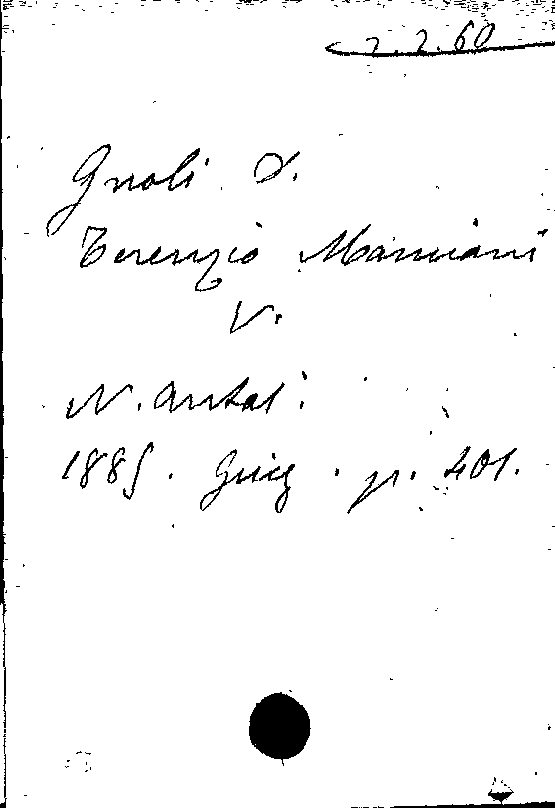 2.2.60
Gnoli D.
Terenzio Mamiani
V.
N. Antol.
1885. Giug. p. 401.